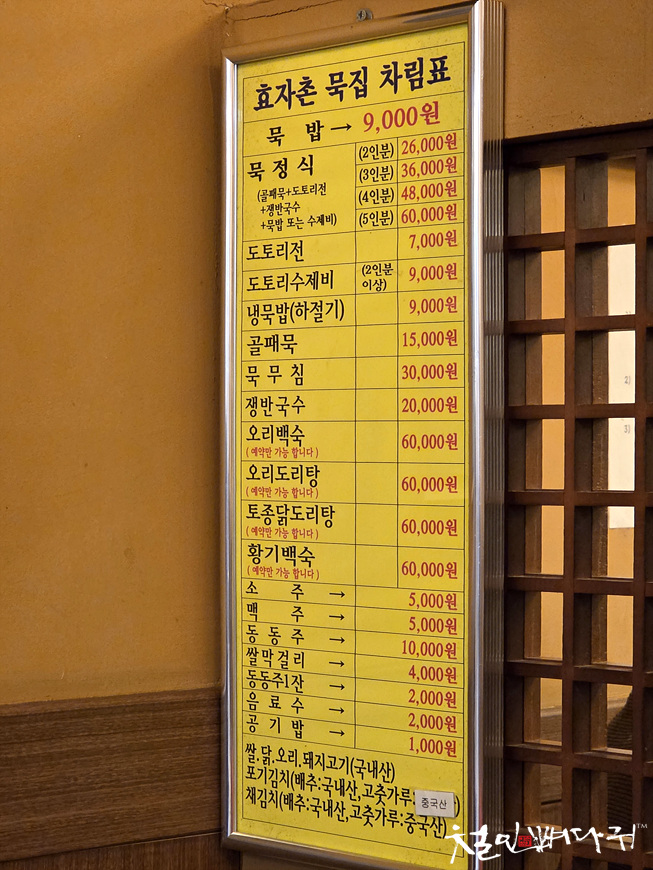 효자촌 묵집 차림표
묵 밥 → 9,000원
묵 정 식 (2인분) 26,000원
(3인분) 36,000원
(골패묵+도토리전
(4인분) 48,000원
+쟁반국수
+묵밥 또는 수제비) (5인분) 60,000원
도토리전 7,000원
도토리수제비 (2인분 이상) 9,000원
냉묵밥(하절기) 9,000원
골패묵 15,000원
묵 무 침 30,000원
쟁반국수 20,000원
오리백숙 60,000원
( 예약만 가능 합니다 )
오리도리탕 60,000원
( 예약만 가능 합니다 )
토종닭도리탕 60,000원
( 예약만 가능 합니다 )
황기백숙 60,000원
( 예약만 가능 합니다 )
소 주 → 5,000원
맥 주 → 5,000원
동 동 주 → 10,000원
쌀막걸리 → 4,000원
동동주1잔 → 2,000원
음 료 수 → 2,000원
공 기 밥 → 1,000원
쌀.닭.오리.돼지고기(국내산)
포기김치(배추:국내산,고춧가루: 중국산)
채김치(배추:국내산,고춧가루:중국산)